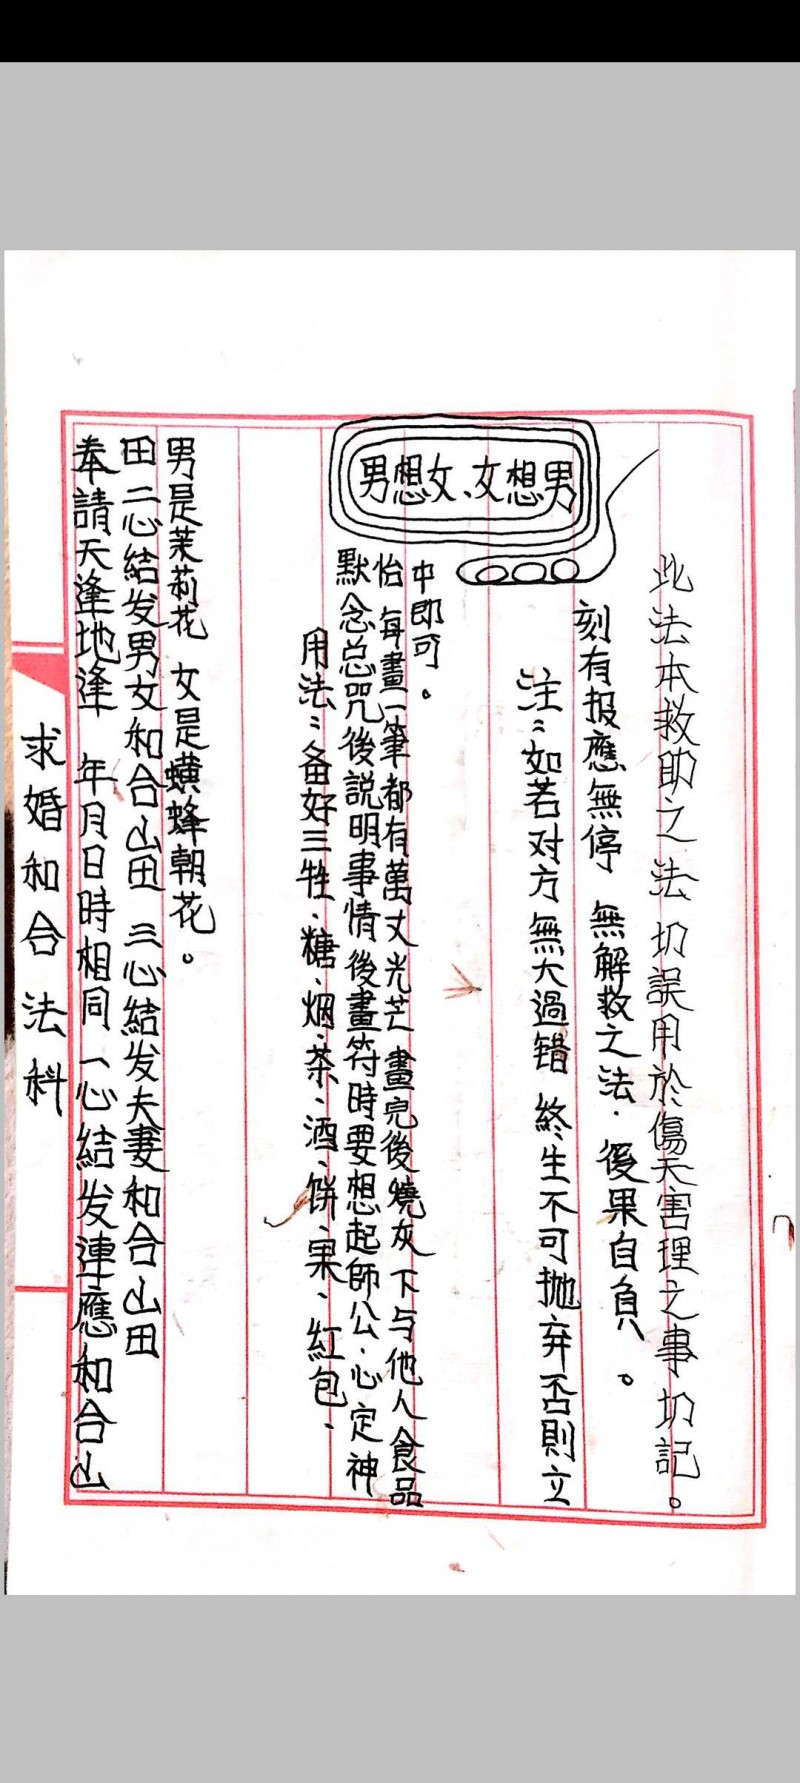 求婚和合法科
奉請天逢地逢 年月日時相同 一心結发連應和合山
田 二心結发男女和合山田 三心結发夫妻和合山田
男是茉莉花 女是蟥蜂朝花。
用法：备好三牲、糖、烟、茶、酒、饼、果、紅包、
默念总咒後説明事情後畫符時要想起師公、心定神
怡 每畫一筆都有萬丈光芒 畫完後燒灰下与他人食品
中即可。
男想女、女想男
注：如若对方無大過错 終生不可抛弃否則立
刻有报應無停 無解救之法．後果自負。
此法本救助之法 切誤用於傷天害理之事切記。